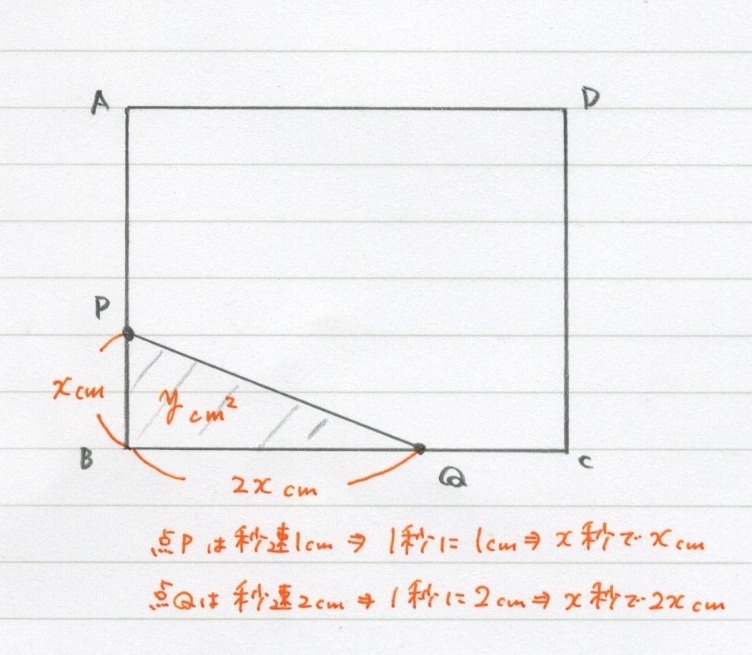 A D
P
xcm
ycm²
B C
Q
2xcm
点Pは秒速1cm ⇒ 1秒に1cm ⇒ x秒でxcm
点Qは秒速2cm ⇒ 1秒に2cm ⇒ x秒で2xcm